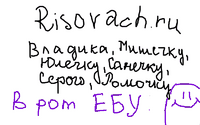 Risovach.ru
Владика, Мишечку,
Юлечку, Санечку,
Серого, Ромочку
В рот ЕБУ.